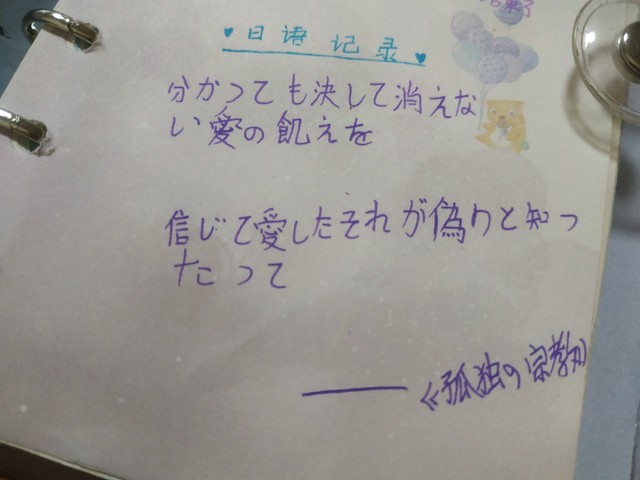 日语记录
分かつても决して消えな
い愛の飢えを
信じて愛したそれが偽りと知っ
たって
——《孤独の宗教》